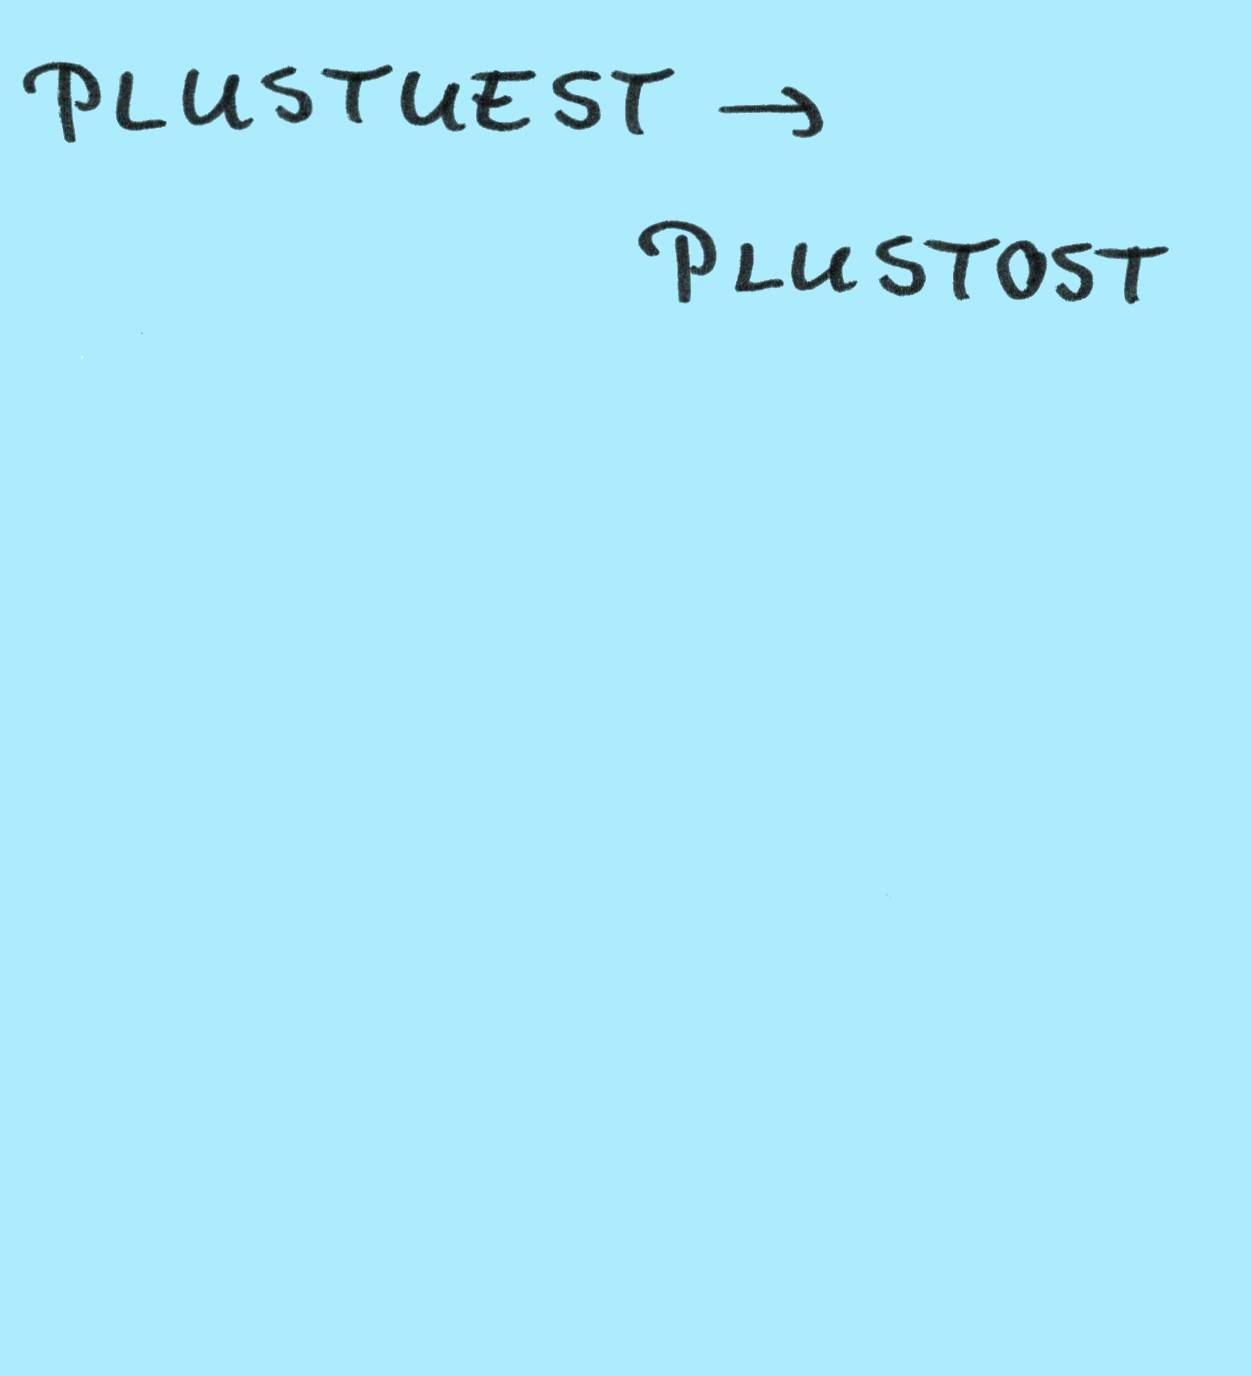 PLUSTUEST →
PLUSTOST